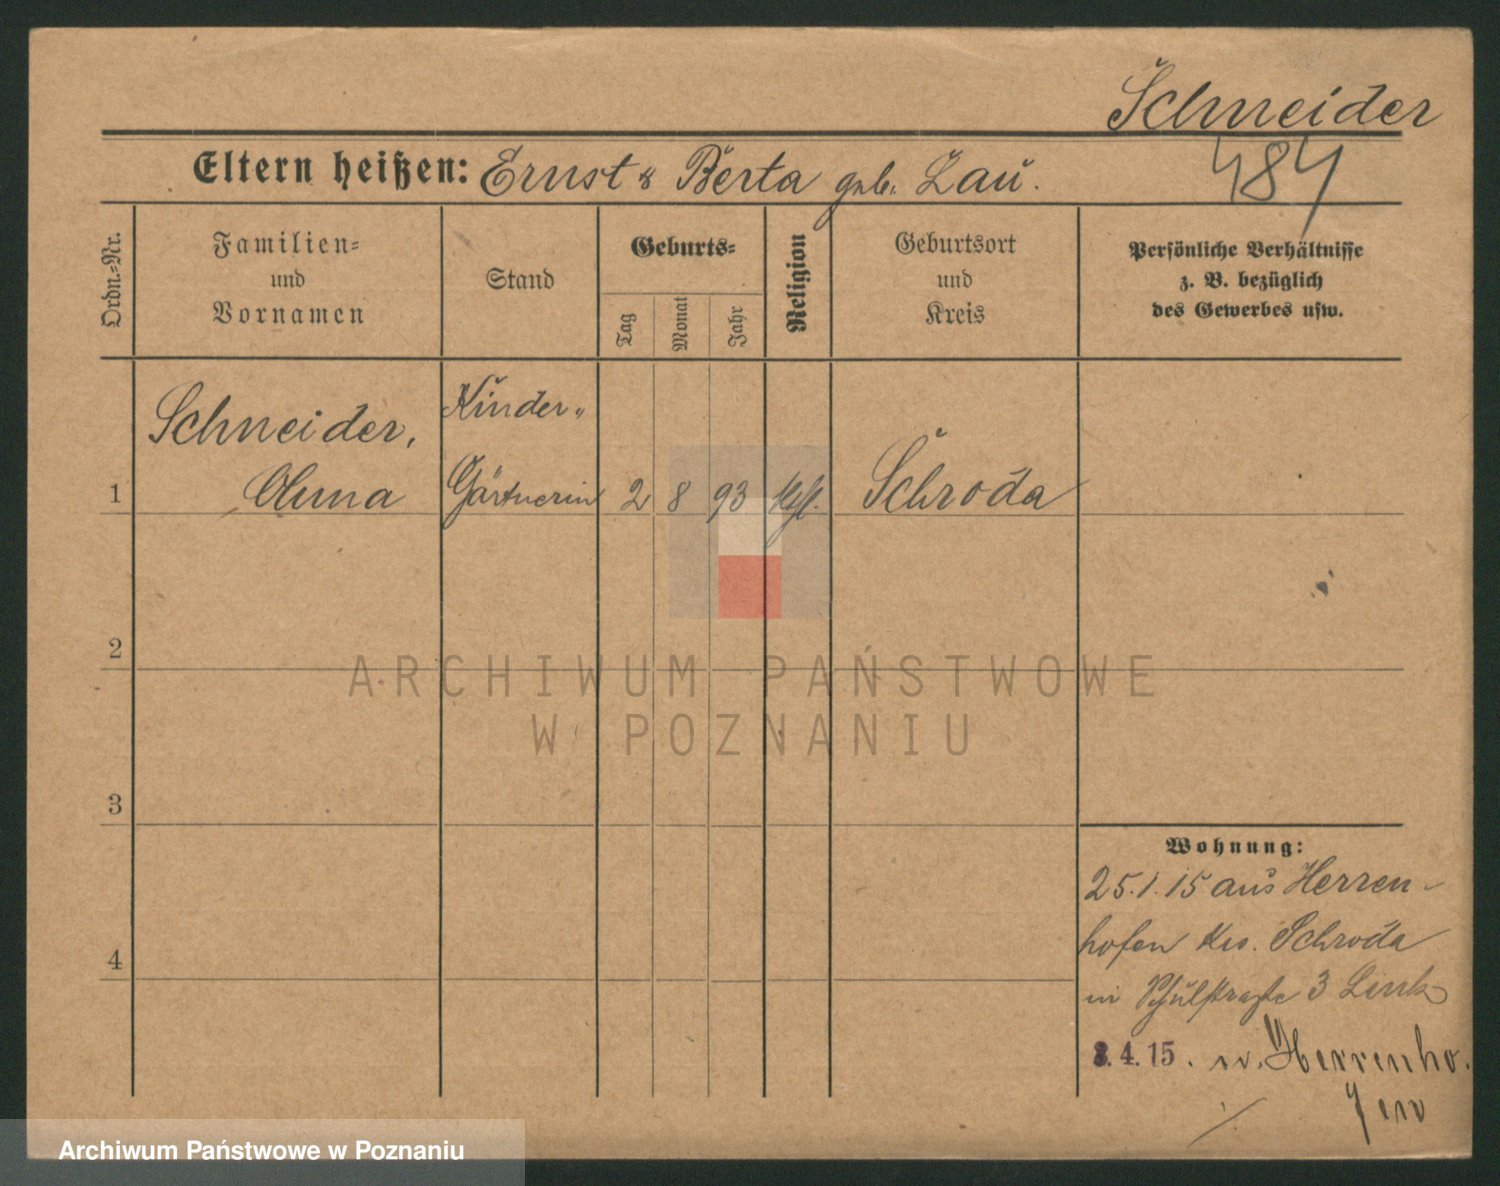 Schneider
484
Eltern heißen: Ernst & Berta geb. Lau.
Ordn.-Nr.
Familien- und Vornamen
Stand
Geburts-
Tag
Monat
Jahr
Religion
Geburtsort und Kreis
Persönliche Verhältnisse
z. B. bezüglich
des Gewerbes usw.
Schneider,
Kinder-
1
Gärtnerin 2 8 93
Schroda
2
ARCHIWUM PAŃSTWOWE
W POZNANIU
3
4
Wohnung:
25.1.15 aus Herren-
hofen Krs. Schroda
in Schulstraße 3
4.15. n. Herrenho.
fen
Archiwum Państwowe w Poznaniu